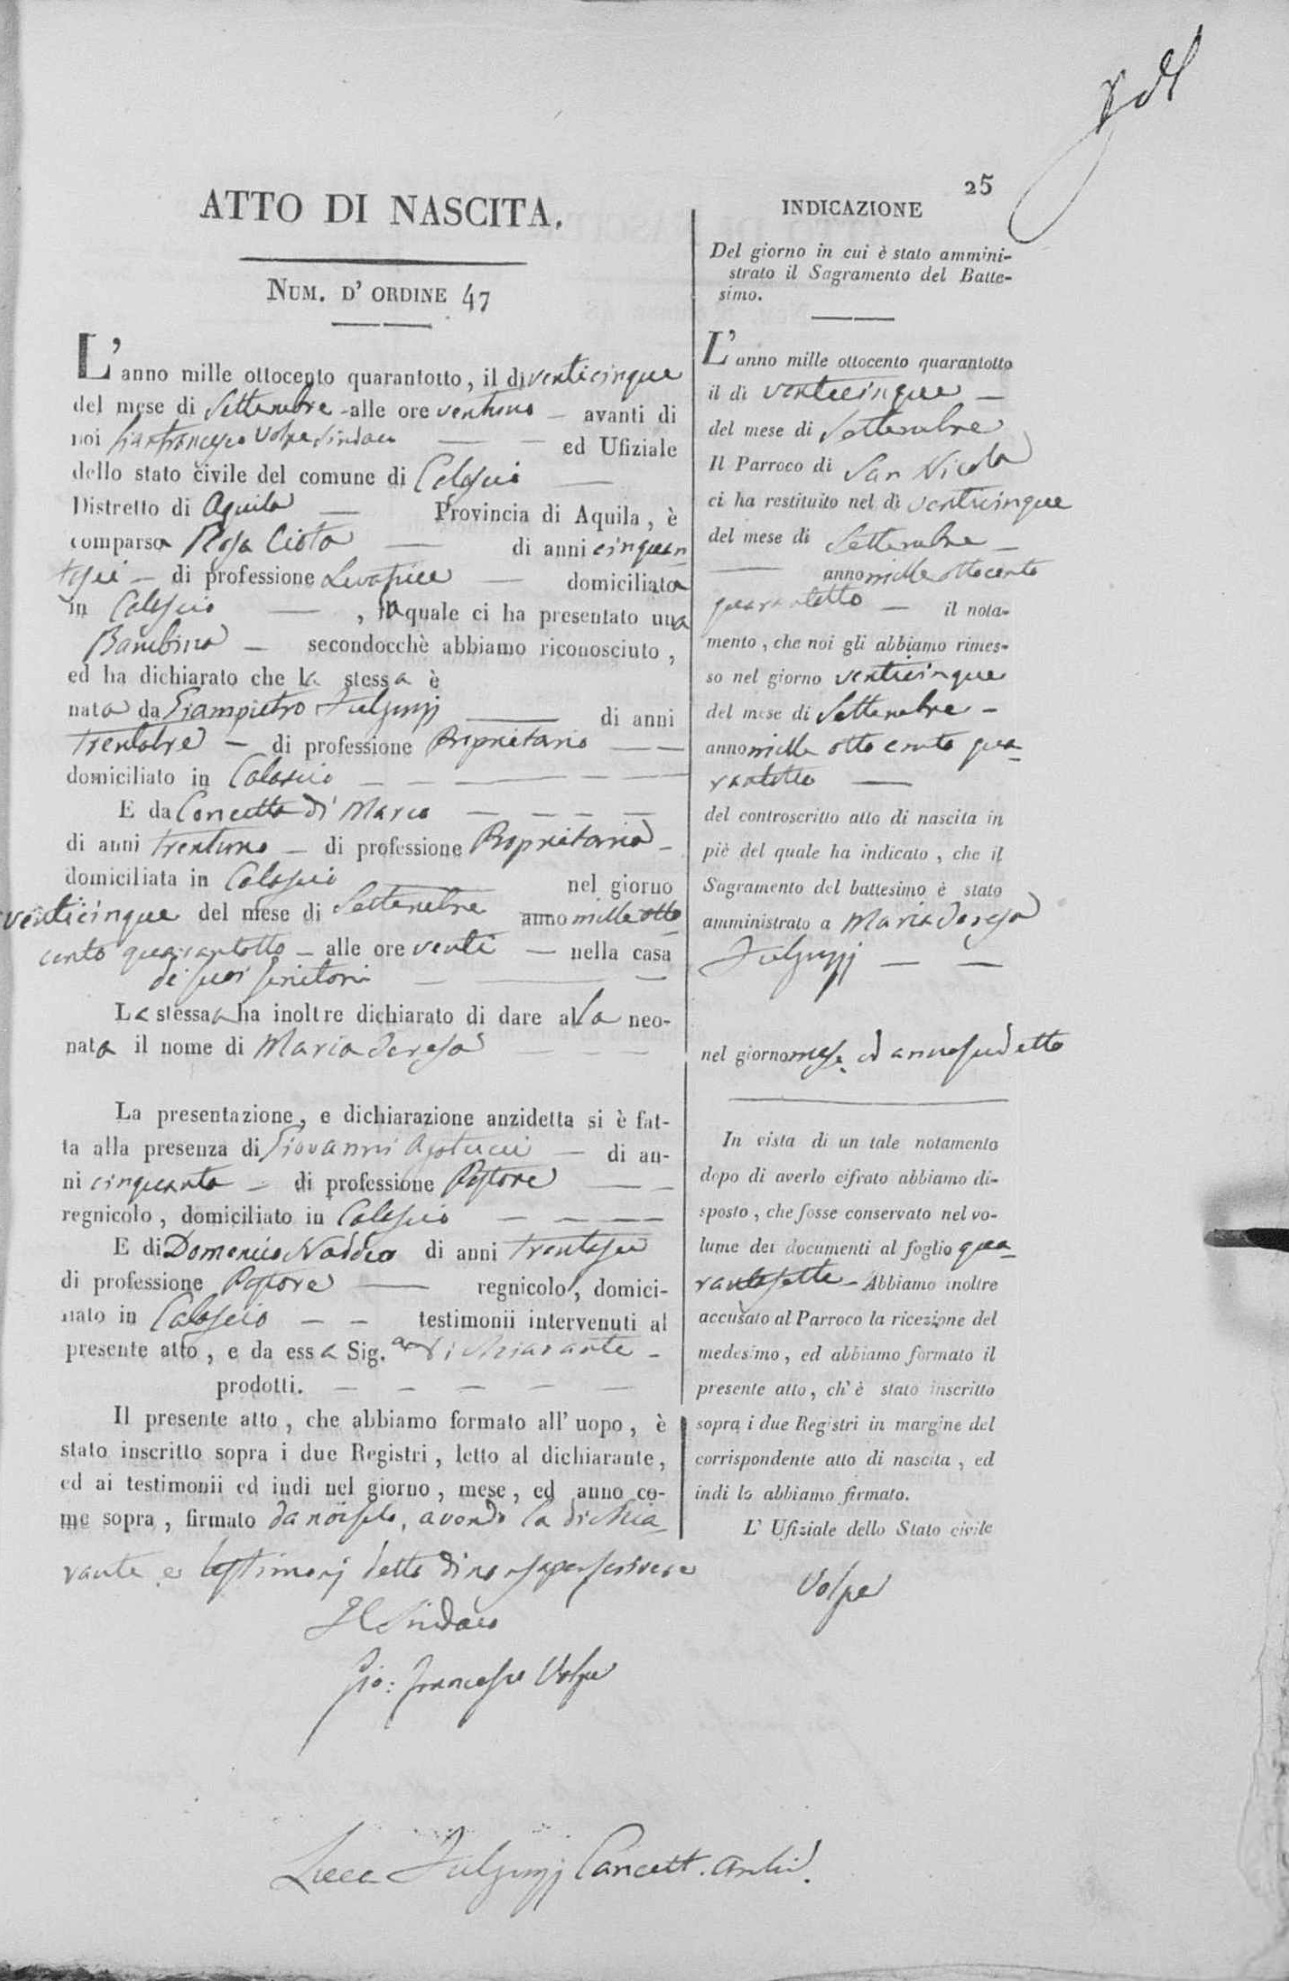 25
ATTO DI NASCITA.
NUM. D' ORDINE 47
L'anno mille ottocento quarantotto, il dì venticinque
del mese di Settembre alle ore ventuno avanti di
noi Gianfrancesco Volpe Sindaco ed Ufiziale
dello stato civile del comune di Calascio
Distretto di Aquila Provincia di Aquila, è
comparsa Rosa Ciota di anni cinquan
tasei di professione Levatrice domiciliata
in Calascio , la quale ci ha presentato una
Bambina secondocchè abbiamo riconosciuto,
ed ha dichiarato che la stessa è
nata da Giampietro Fulgenzj di anni
trentatre di professione Proprietario
domiciliato in Calascio
E da Concetta di Marco
di anni trentuno di professione Proprietaria
domiciliata in Calascio nel giorno
venticinque del mese di Settembre anno mille otto
cento quarantotto alle ore venti nella casa
de' suoi genitori
La stessa ha inoltre dichiarato di dare alla neo-
nata il nome di Maria Teresa
La presentazione, e dichiarazione anzidetta si è fat-
ta alla presenza di Giovanni di an-
ni cinquanta di professione Pastore
regnicolo, domiciliato in Calascio
E di Domenico di anni trentasei
di professione Pastore regnicolo, domici-
liato in Calascio testimonii intervenuti al
presente atto, e da essa Sig.ra dichiarante
prodotti.
Il presente atto, che abbiamo formato all' uopo, è
stato inscritto sopra i due Registri, letto al dichiarante,
ed ai testimonii ed indi nel giorno, mese, ed anno co-
me sopra, firmato da noi solo, avendo la dichia
rante e testimonj detto di non saper scrivere
Il Sindaco
Gio: Francesco Volpe
Luca Fulgenzj Cancell. Archiv.
INDICAZIONE
Del giorno in cui è stato ammini-
strato il Sagramento del Batte-
simo.
L'anno mille ottocento quarantotto
il dì venticinque
del mese di Settembre
Il Parroco di San Nicola
ci ha restituito nel dì venticinque
del mese di Settembre
anno mille ottocento
quarantotto il nota-
mento, che noi gli abbiamo rimes-
so nel giorno venticinque
del mese di Settembre
anno mille otto cento qua-
rantotto
del controscritto atto di nascita in
piè del quale ha indicato, che il
Sagramento del battesimo è stato
amministrato a Maria Teresa
Fulgenzj
nel giorno mese ed anno sudetto
In vista di un tale notamento
dopo di averlo cifrato abbiamo di-
sposto, che fosse conservato nel vo-
lume dei documenti al foglio qua-
rantasette Abbiamo inoltre
accusato al Parroco la ricezione del
medesimo, ed abbiamo formato il
presente atto, ch' è stato inscritto
sopra i due Registri in margine del
corrispondente atto di nascita, ed
indi lo abbiamo firmato.
L' Ufiziale dello Stato civile
Volpe